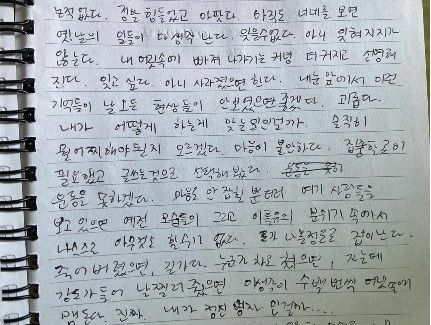 눈치 없다. 정말 힘들었고 아팠다. 아직도 너네를 보면
옛날의 일들이 다 생각난다. 잊을수없다. 아니 잊혀지지가
않는다. 내 머릿속에 빠져 나가기는 커녕 더 커지고 선명해
진다. 잊고 싶다. 아니 사라졌으면 한다. 내 눈 앞에서 이런
기억들이 날 모든 현상들이 안보였으면 좋겠다. 괴롭다.
내가 어떻게 하는게 맞는 일인걸까. 솔직히
뭘 어찌해야될지 모르겠다. 마음이 불안하다. 집중할곳이
필요했고 글쓰는것으로 선택해 봤다.
운동은 못하겠다. 마음도 안 잡힐 뿐더러 여기 사람들을
보고 있으면 예전 모습들이 그리고 이들의 분위기 속에서
나 스스로 아무것도 할수가 없다. 나를 정도로 겁이난다.
죽어 버렸으면, 길가다 누군가 차로 쳤으면, 자는데
강도가 들어 날 찔러 줬으면 이 생각이 수백번씩 머릿속에
맴돈다. 진짜 내가 점점 인걸까...